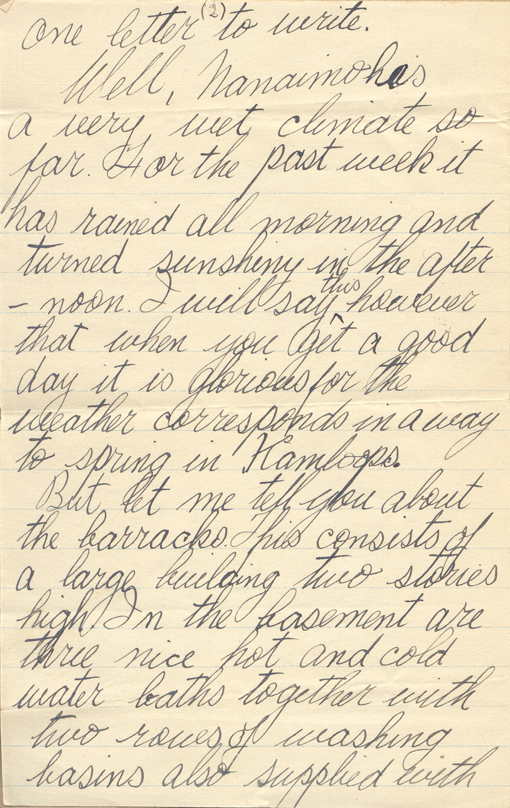 (2)
one letter to write.
Well, Nanaimo has
a very wet climate so
far. For the past week it
has rained all morning and
turned sunshiny in the after
- noon. I will say this however
that when you get a good
day it is glorious for the
weather corresponds in a way
to spring in Kamloops.
But let me tell you about
the barracks. This consists of
a large building two stories
high. In the basement are
three nice hot and cold
water baths together with
two rows of washing
basins also supplied with